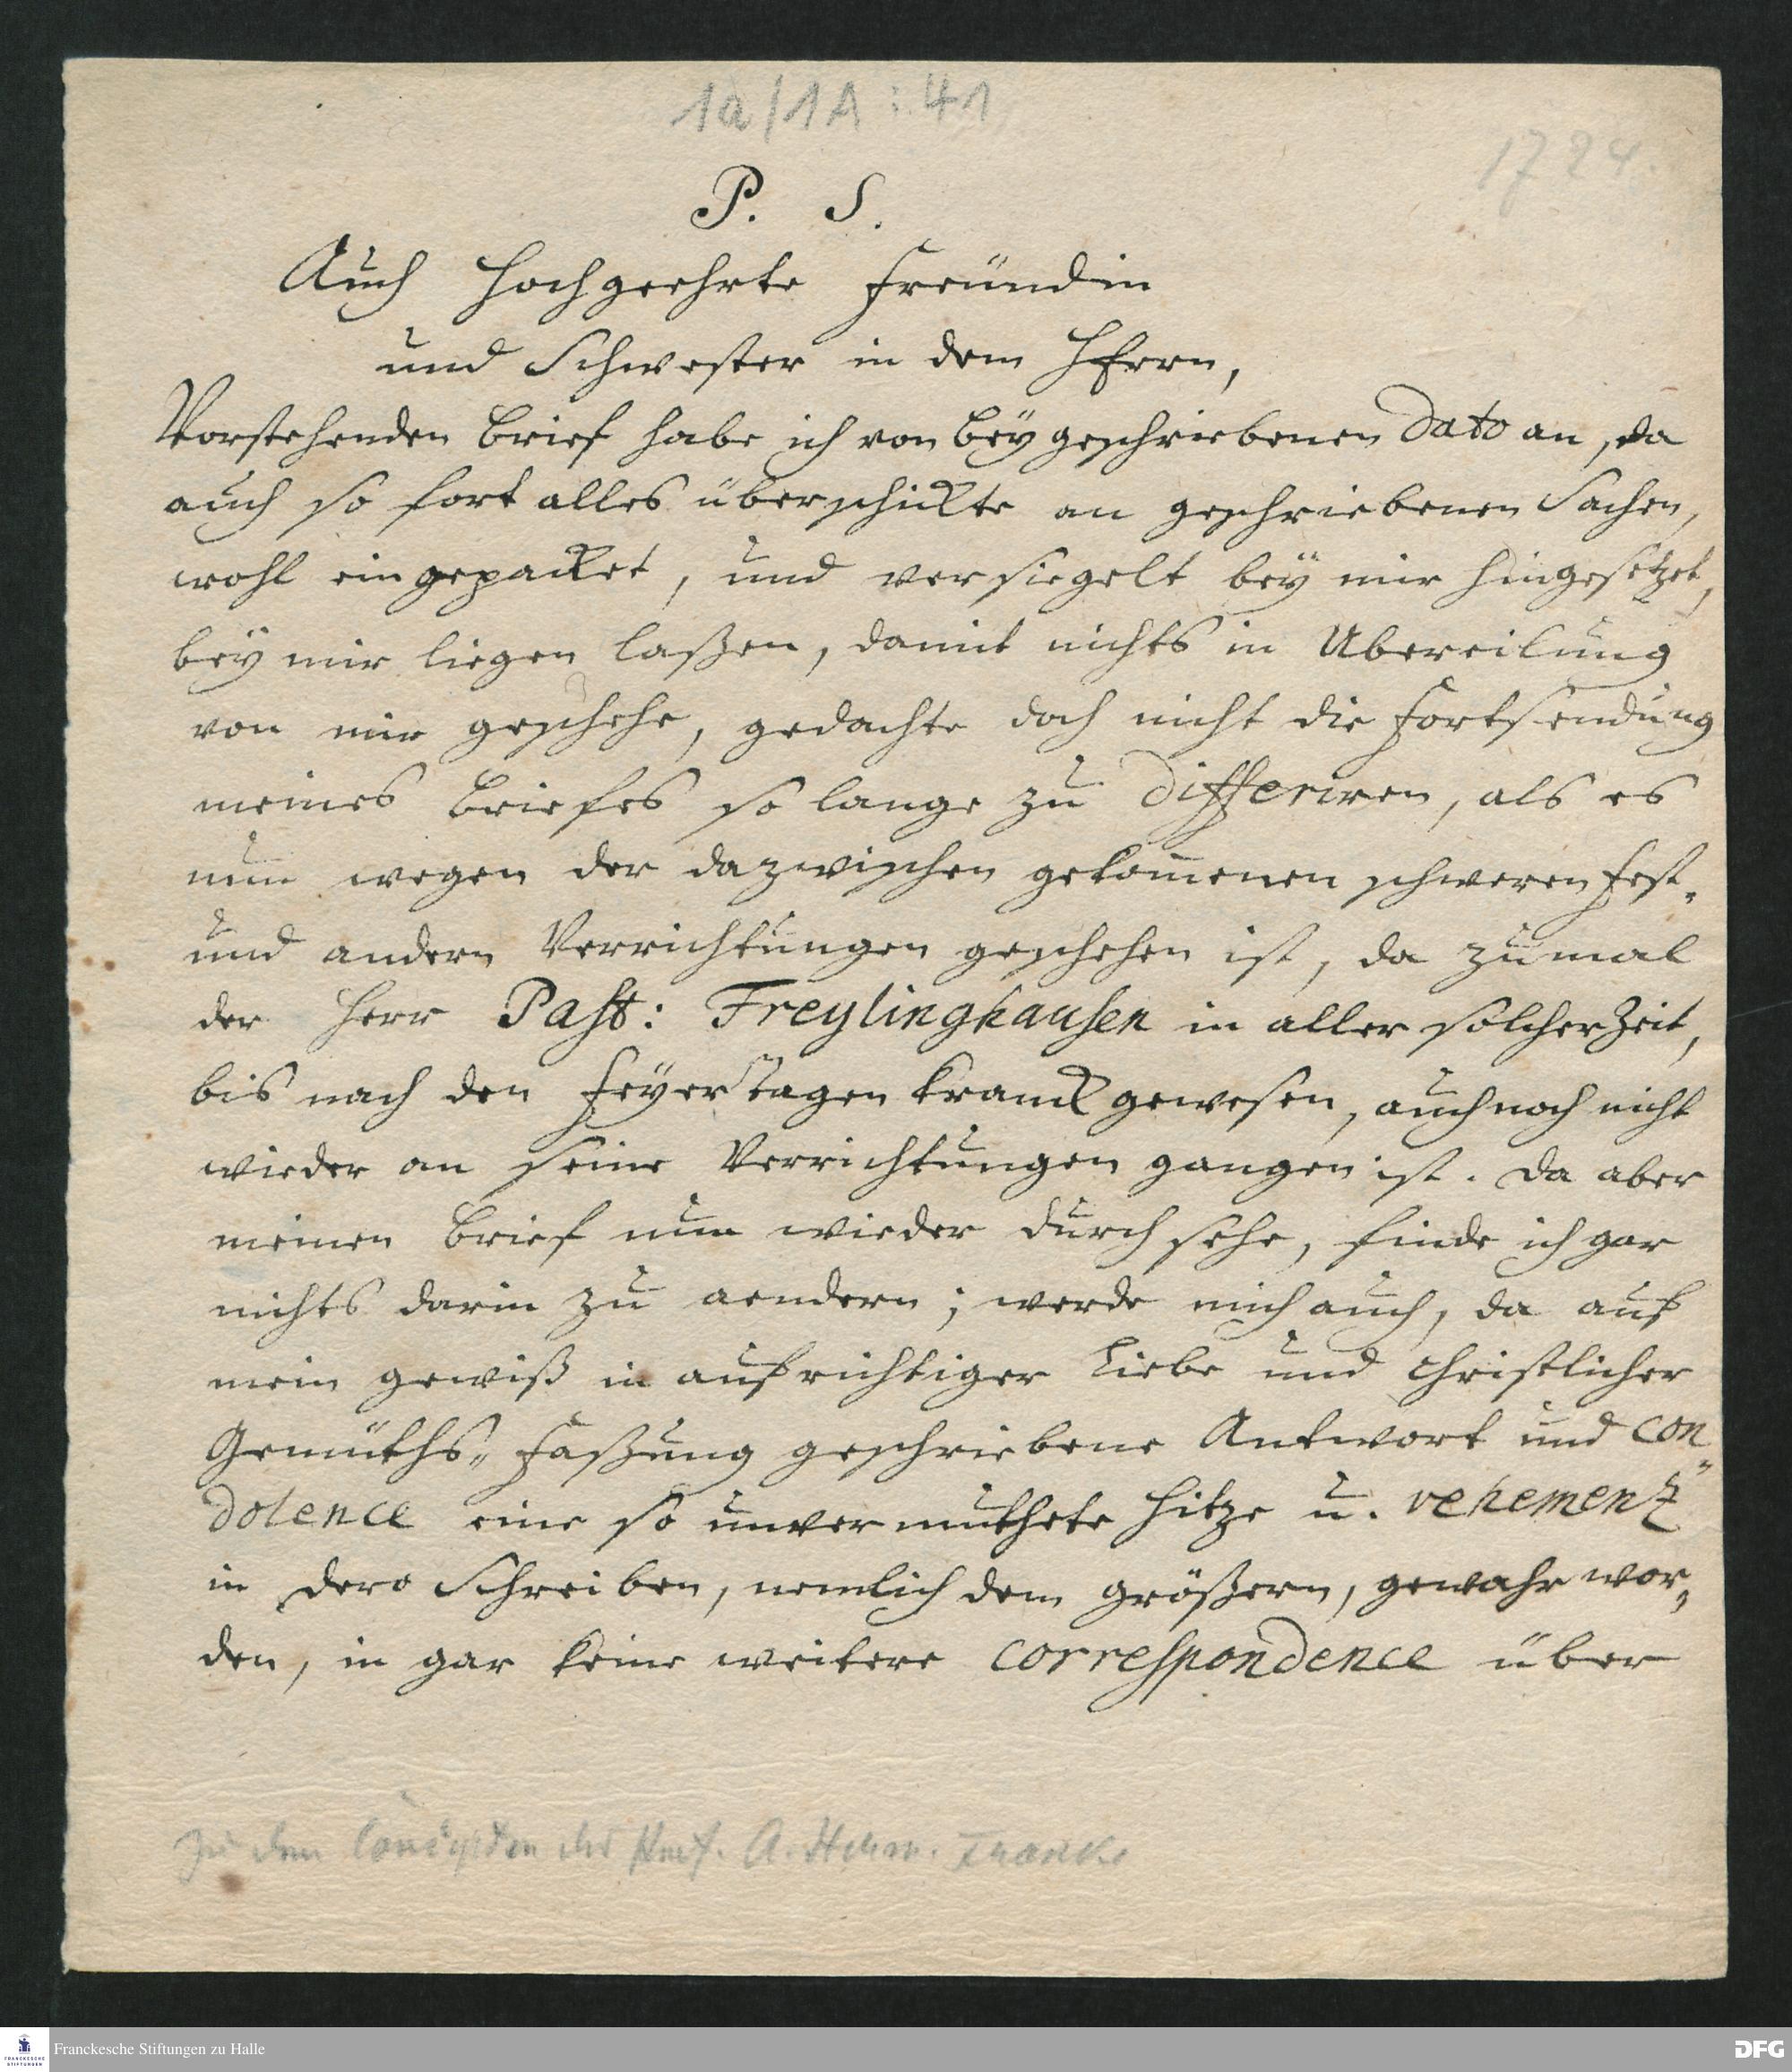 1a/1A : 41
1724.
P. S.
Auch Hochgeehrte Freündin
und Schwester in dem HErrn,
Vorstehenden Brief habe ich von beygeschriebenen Dato an, da
auch so fort alles überschickte an geschriebenen Sachen,
wohl eingepacket, und versiegelt bey mir hingesetzet,
bey mir liegen laßen, damit nichts in Ubereilung
von mir geschehe, gedachte doch nicht die Fortsendung
meines Briefes so lange zu differiren, als es
nun wegen der dazwischen gekom̄enen schweren Fest-
und andern Verrichtungen geschehen ist, da zumal
der Herr Past: Freylinghausen in aller solcher Zeit,
bis nach den Feyertagen kranck gewesen, auch noch nicht
wieder an seine Verrichtungen gangen ist. Da aber
meinen Brief nun wieder durchsehe, finde ich gar
nichts darin zu aendern; werde mich auch, da auf
mein gewiß in aufrichtiger Liebe und Christlicher
Gemüths-Faßung geschriebene Antwort und con-
dolence eine so unvermuthete Hitze u. vehementz
in dero Schreiben, nemlich dem größern, gewahr wor-
den, in gar keine weitere correspondence über
Zu den des Prof. A. Herm. Francke
Franckesche Stiftungen zu Halle
FRANCKESCHE
STIFTUNGEN
DFG